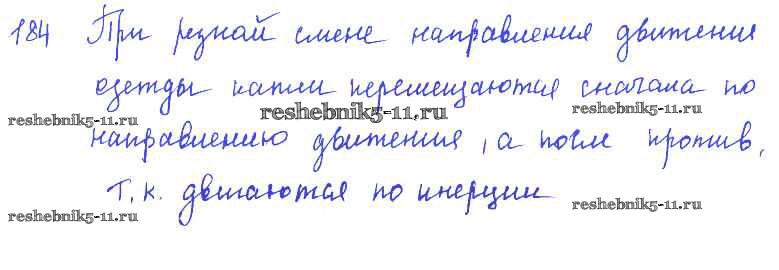 184 При резкой смене направления движения
одежды капли перемещаются сначала по
reshebnik5-11.ru reshebnik5-11.ru reshebnik5-11.ru
направлению движения, а после против,
т.к. двигаются по инерции
reshebnik5-11.ru reshebnik5-11.ru